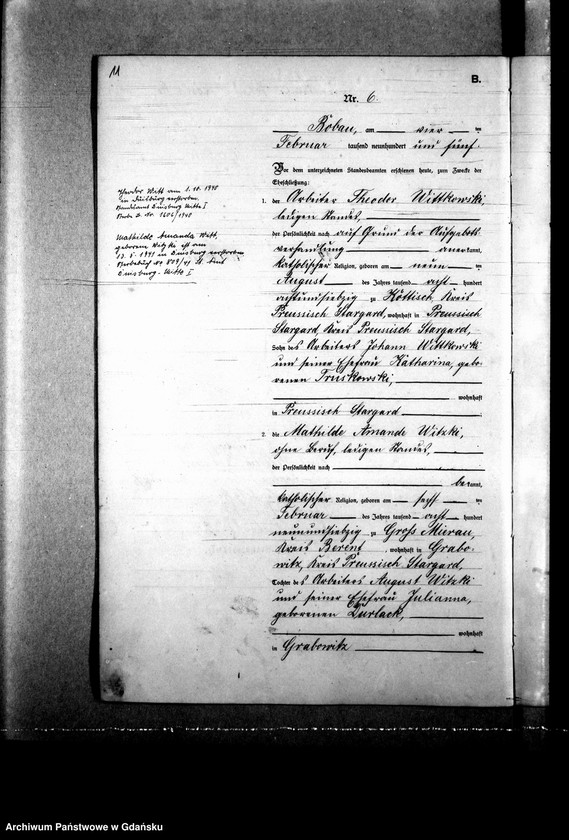 11
B.
Nr. 6.
Boban, am vier ten
Februar tausend neunhundert und fünf.
Vor dem unterzeichneten Standesbeamten erschienen heute, zum Zwecke der
Eheschließung:
1. der Arbeiter Theodor Wittkowski,
ledigen Standes,
der Persönlichkeit nach auf Grund der Aufgebots
verhandlung anerkannt,
katholischer Religion, geboren am neun ten
August des Jahres tausend acht hundert
achtundsiebzig zu Köttisch, Kreis
Preussisch Stargard, wohnhaft in Preussisch
Stargard, Kreis Preussisch Stargard,
Sohn des Arbeiters Johann Wittkowski
und seiner Ehefrau Katharina, gebo-
renen Truskowski,
wohnhaft
in Preussisch Stargard
2. die Mathilde Amande Witzki,
ohne Beruf, ledigen Standes,
der Persönlichkeit nach
bekannt,
katholischer Religion, geboren am sechs ten
Februar des Jahres tausend acht hundert
neunundsiebzig zu Groß Mierau,
Kreis Berent, wohnhaft in Grabo-
witz, Kreis Preussisch Stargard,
Tochter des Arbeiters August Witzki
und seiner Ehefrau Julianna,
geborenen Durlack,
wohnhaft
in Grabowitz
Theodor Witt am 1.10.1940
in Duisburg verstorben
Standesamt Duisburg Mitte I
Sterbe B. Nr. 1606/1940
Mathilde Amanda Witt,
geborene Witzki ist am
in Duisburg verstorben
Sterbebuch Nr 809/41 St. Amt
Duisburg-Mitte I
Archiwum Państwowe w Gdańsku